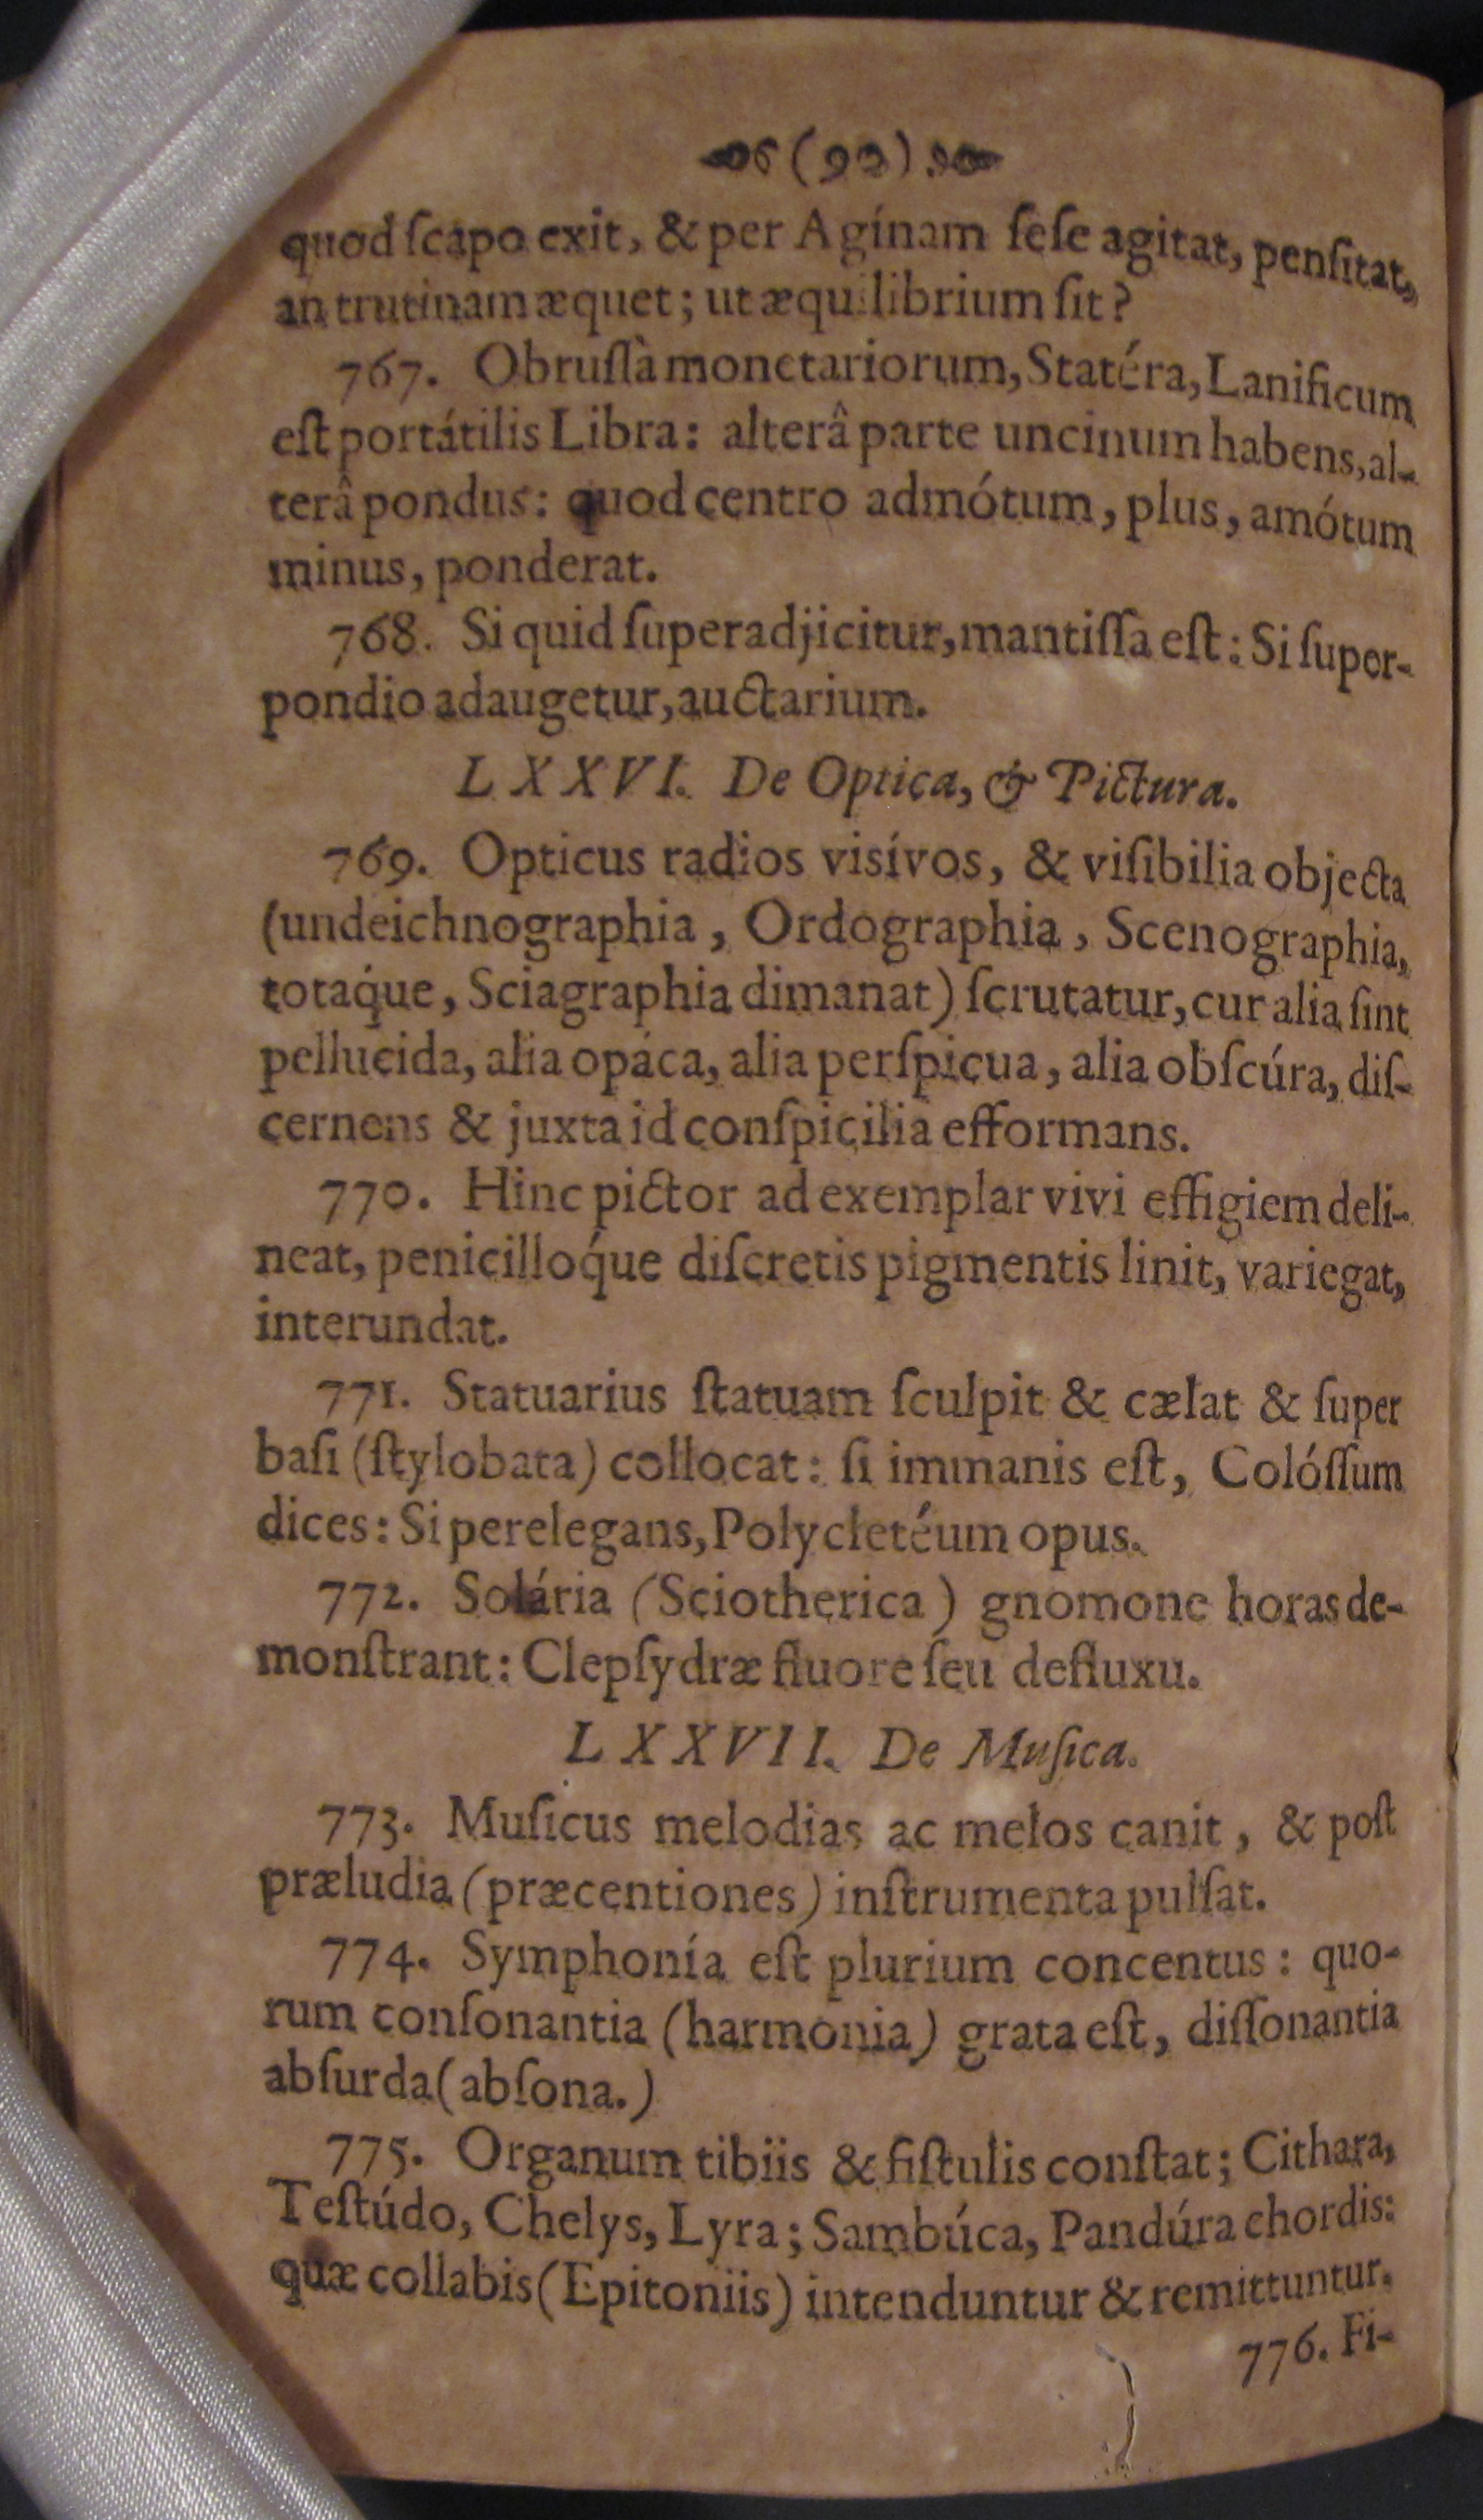 (90)
quod ſcapo exit, & per Agínam ſeſe agitat, penſitat,
an trutinam æquet; ut æquilibrium ſit?
767. Obruſſà monetariorum, Statéra, Lanificum
eſt portátilis Libra: alterâ parte uncinum habens, al-
terâ pondus: quod centro admótum, plus, amótum
minus, ponderat.
768. Si quid ſuperadjicitur, mantiſſa eſt: Si ſuper-
pondio adaugetur, auctarium.
LXXVI. De Optica, & Pictura.
769. Opticus radios visívos, & viſibilia objecta
(undeichnographia, Ordographia, Scenographia,
totaq́ue, Sciagraphia dimanat) ſcrutatur, cur alia ſint
pellucida, alia opáca, alia perſpicua, alia obſcúra, diſ-
cernens & juxta id conſpicilia efformans.
770. Hinc pictor ad exemplar vivi effigiem deli-
neat, penicilloq́ue diſcretis pigmentis linit, variegat,
interundat.
771. Statuarius ſtatuam ſculpit & cælat & ſuper
baſi (ſtylobata) collocat: ſi immanis eſt, Colóſſum
dices: Si perelegans, Polycletéum opus.
772. Solária (Sciotherica) gnomone horas de-
monſtrant: Clepſydræ fluore ſeu defluxu.
LXXVII. De Muſica.
773. Muſicus melodias ac melos canit, & poſt
præludia (præcentiones) inſtrumenta pulſat.
774. Symphonía eſt plurium concentus: quo-
rum conſonantia (harmonia) grata eſt, diſſonantia
abſurda (abſona.)
775. Organum tibiis & fiſtulis conſtat; Cithara,
Teſtúdo, Chelys, Lyra; Sambúca, Pandúra chordis:
quæ collabis (Epitoniis) intenduntur & remittuntur.
776. Fi-